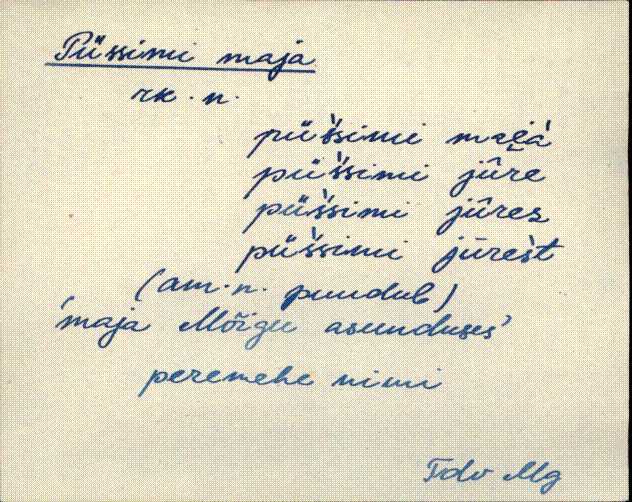 Püssimi maja
rk. n.
püs̀simi mai̯à
püs̀simi jûre
püs̀simi jûres
püs̀simi jūres̀t
(am. n. puudub)
'maja Mõigu asunduses'
peremehe nimi
Tdv Mg